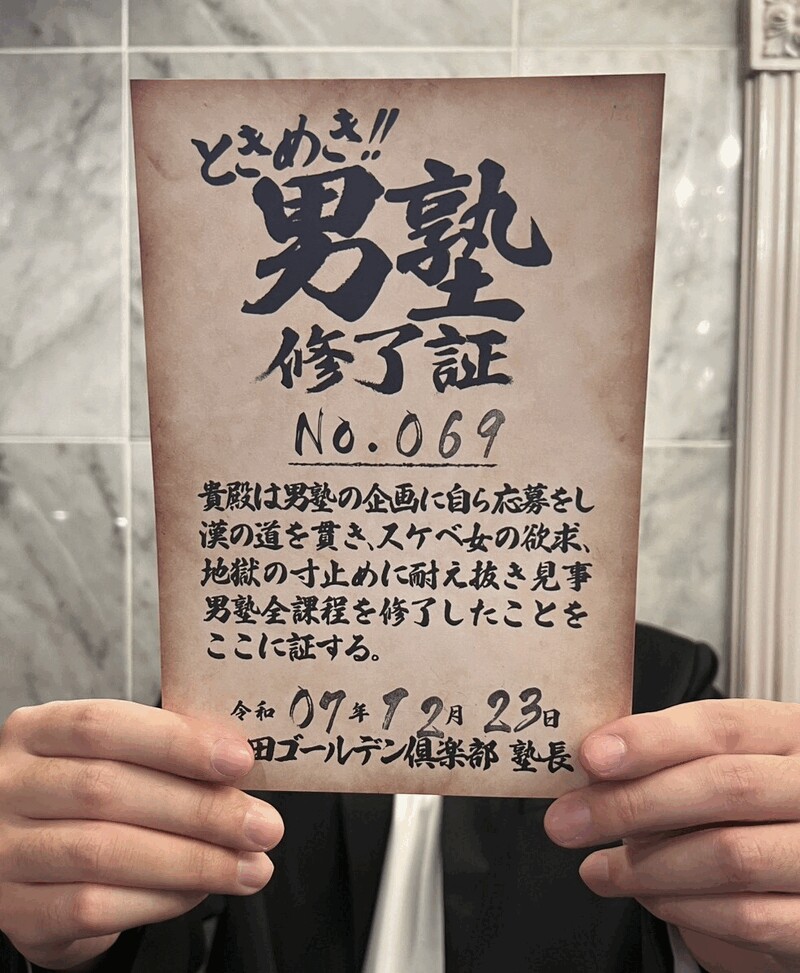 ときめき!!
男塾
修了証
No.069
貴殿は男塾の企画に自ら応募をし
漢の道を貫き、スケベ女の欲求、
地獄の寸止めに耐え抜き見事
男塾全課程を修了したことを
ここに証する。
令和 07年 12月 23日
田ゴールデン倶楽部 塾長